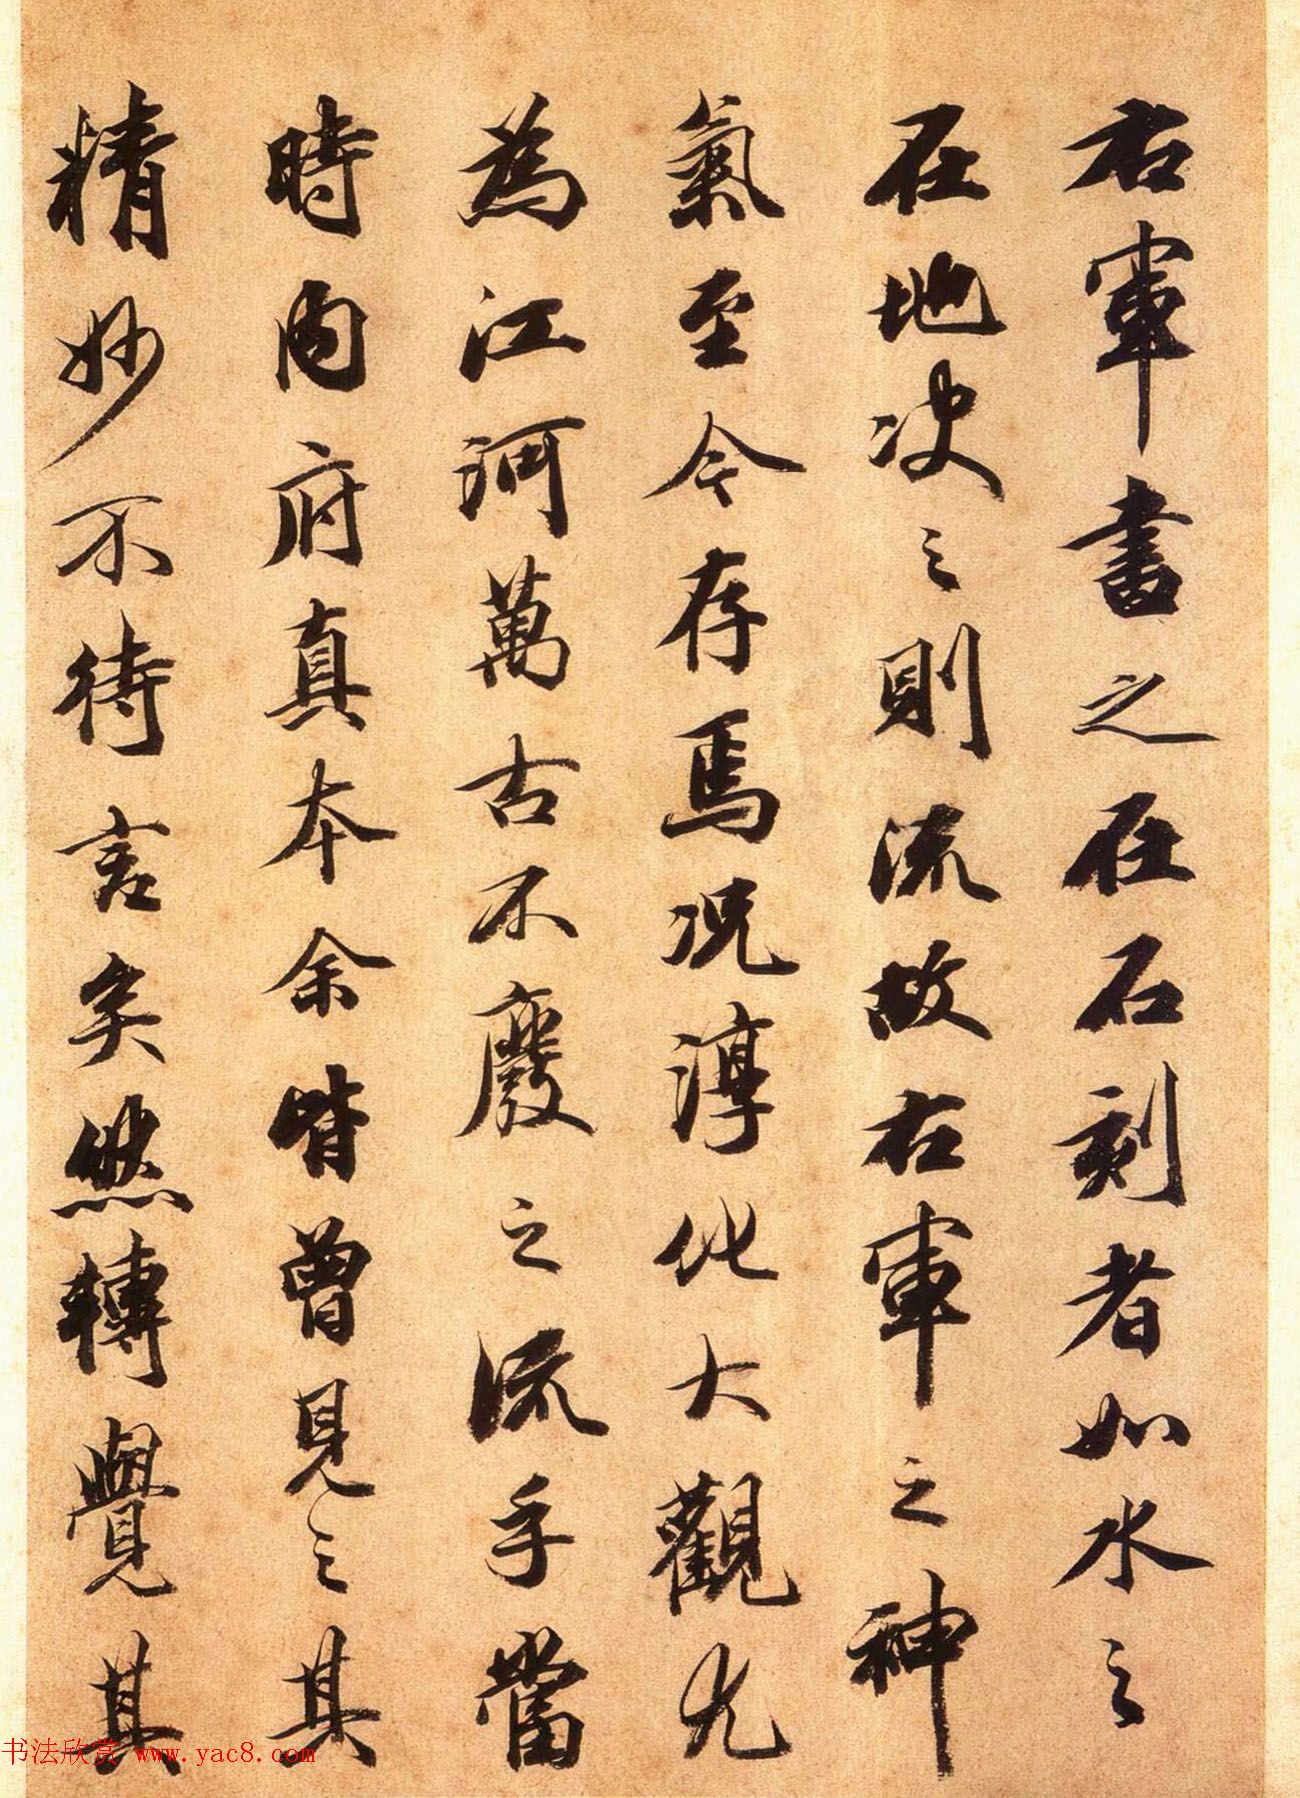 右軍書之在石刻者如水之
在地决之則流故右軍之神
氣至今存焉况淳化大觀尤
為江河萬古不廢之流乎當
時内府真本余皆曾見之其
精妙不待言矣然轉覺其
书法欣赏 www.yac8.com